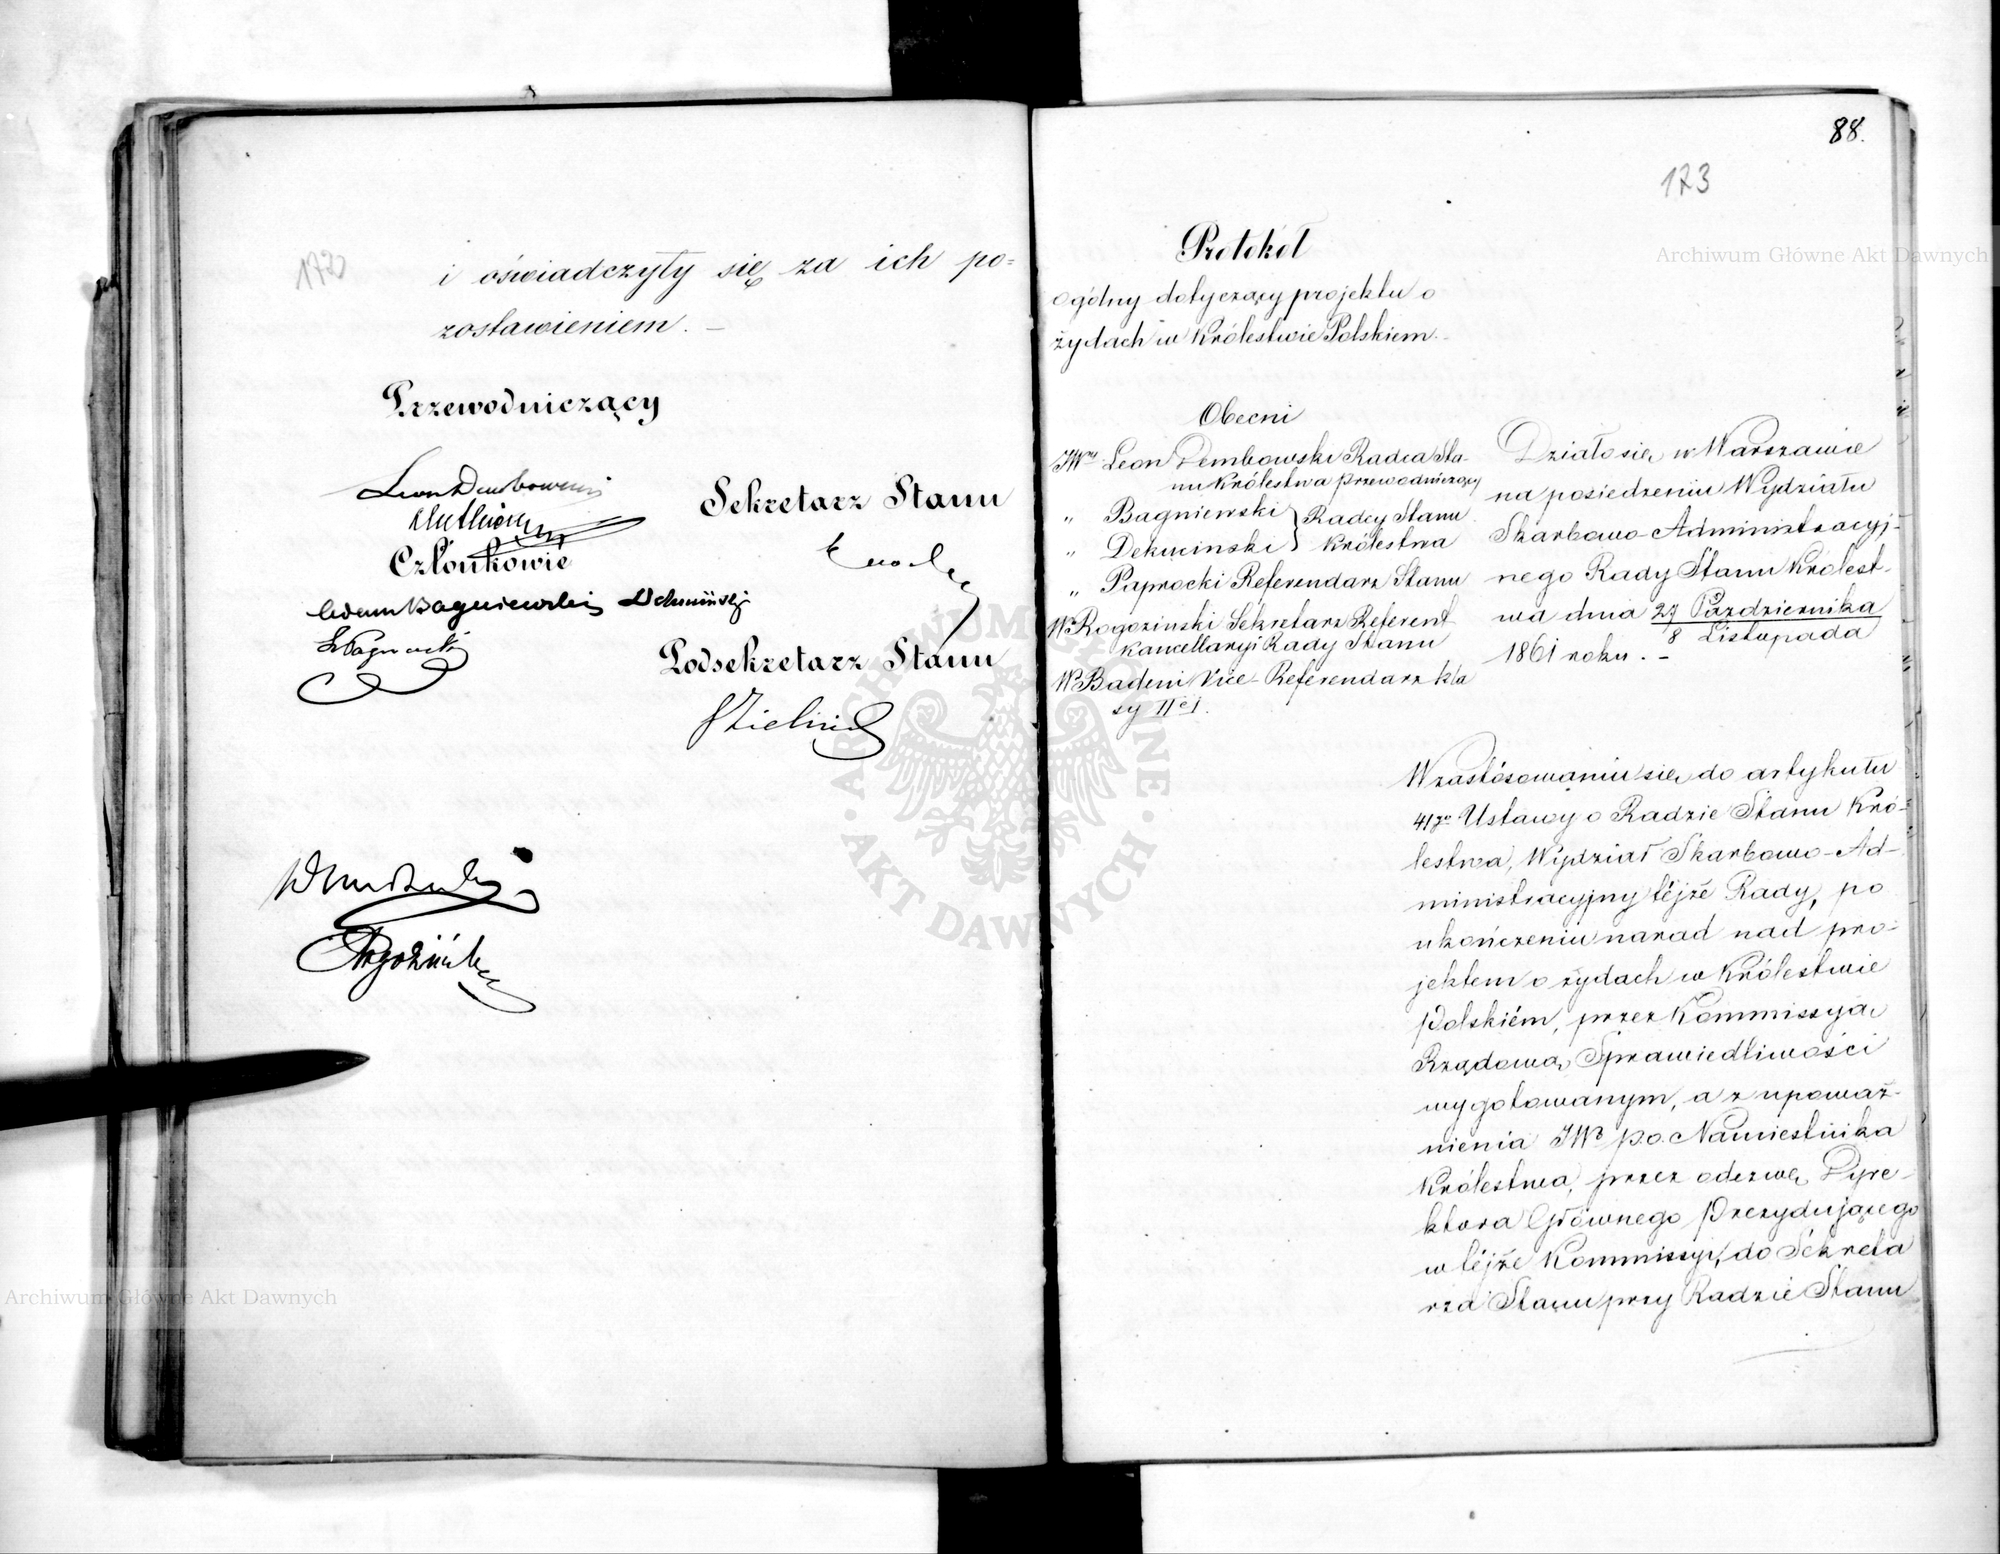 i oświadczyły się za ich po-
zostawieniem. –
Przewodniczący
Leon Dembowski
Członkowie
Adam Bagniewski Dekuciński
Sekretarz Stanu
Podsekretarz Stanu
88.
173
Protokół
ogólny dotyczący projektu o
żydach w Królestwie Polskiem. –
Obecni
JWny Leon Dembowski Radca Sta-
nu Królestwa przewodniczący
„ Bagniewski } Radcy Stanu
„ Dekucinski } Królestwa
„ Paprocki Referendarz Stanu
W. Rogozinski Sekretarz Referent
Kancellaryi Rady Stanu
W. Badeni Vice-Referendarz kla
sy IIej.
Działo się w Warszawie
na posiedzeniu Wydziału
Skarbowo-Administracyj-
nego Rady Stanu Królest-
wa dnia 27 Października
8 Listopada
1861 roku. –
W zastósowaniu się do artykułu
41go Ustawy o Radzie Stanu Kró-
lestwa, Wydział Skarbowo-Ad-
ministracyjny téjże Rady, po
ukończeniu narad nad pro-
jektem o żydach w Królestwie
Polskiém, przez Kommissyą
Rządową Sprawiedliwości
wygotowanym, a z upoważ-
nienia JWo p.o. Namiestnika
Królestwa, przez odezwę Dyre-
ktora Głównego Prezydującego
w téjże Kommissyi, do Sekreta
rza Stanu przy Radzie Stanu
Archiwum Główne Akt Dawnych
Archiwum Główne Akt Dawnych
ARCHIWUM GŁÓWNE AKT DAWNYCH